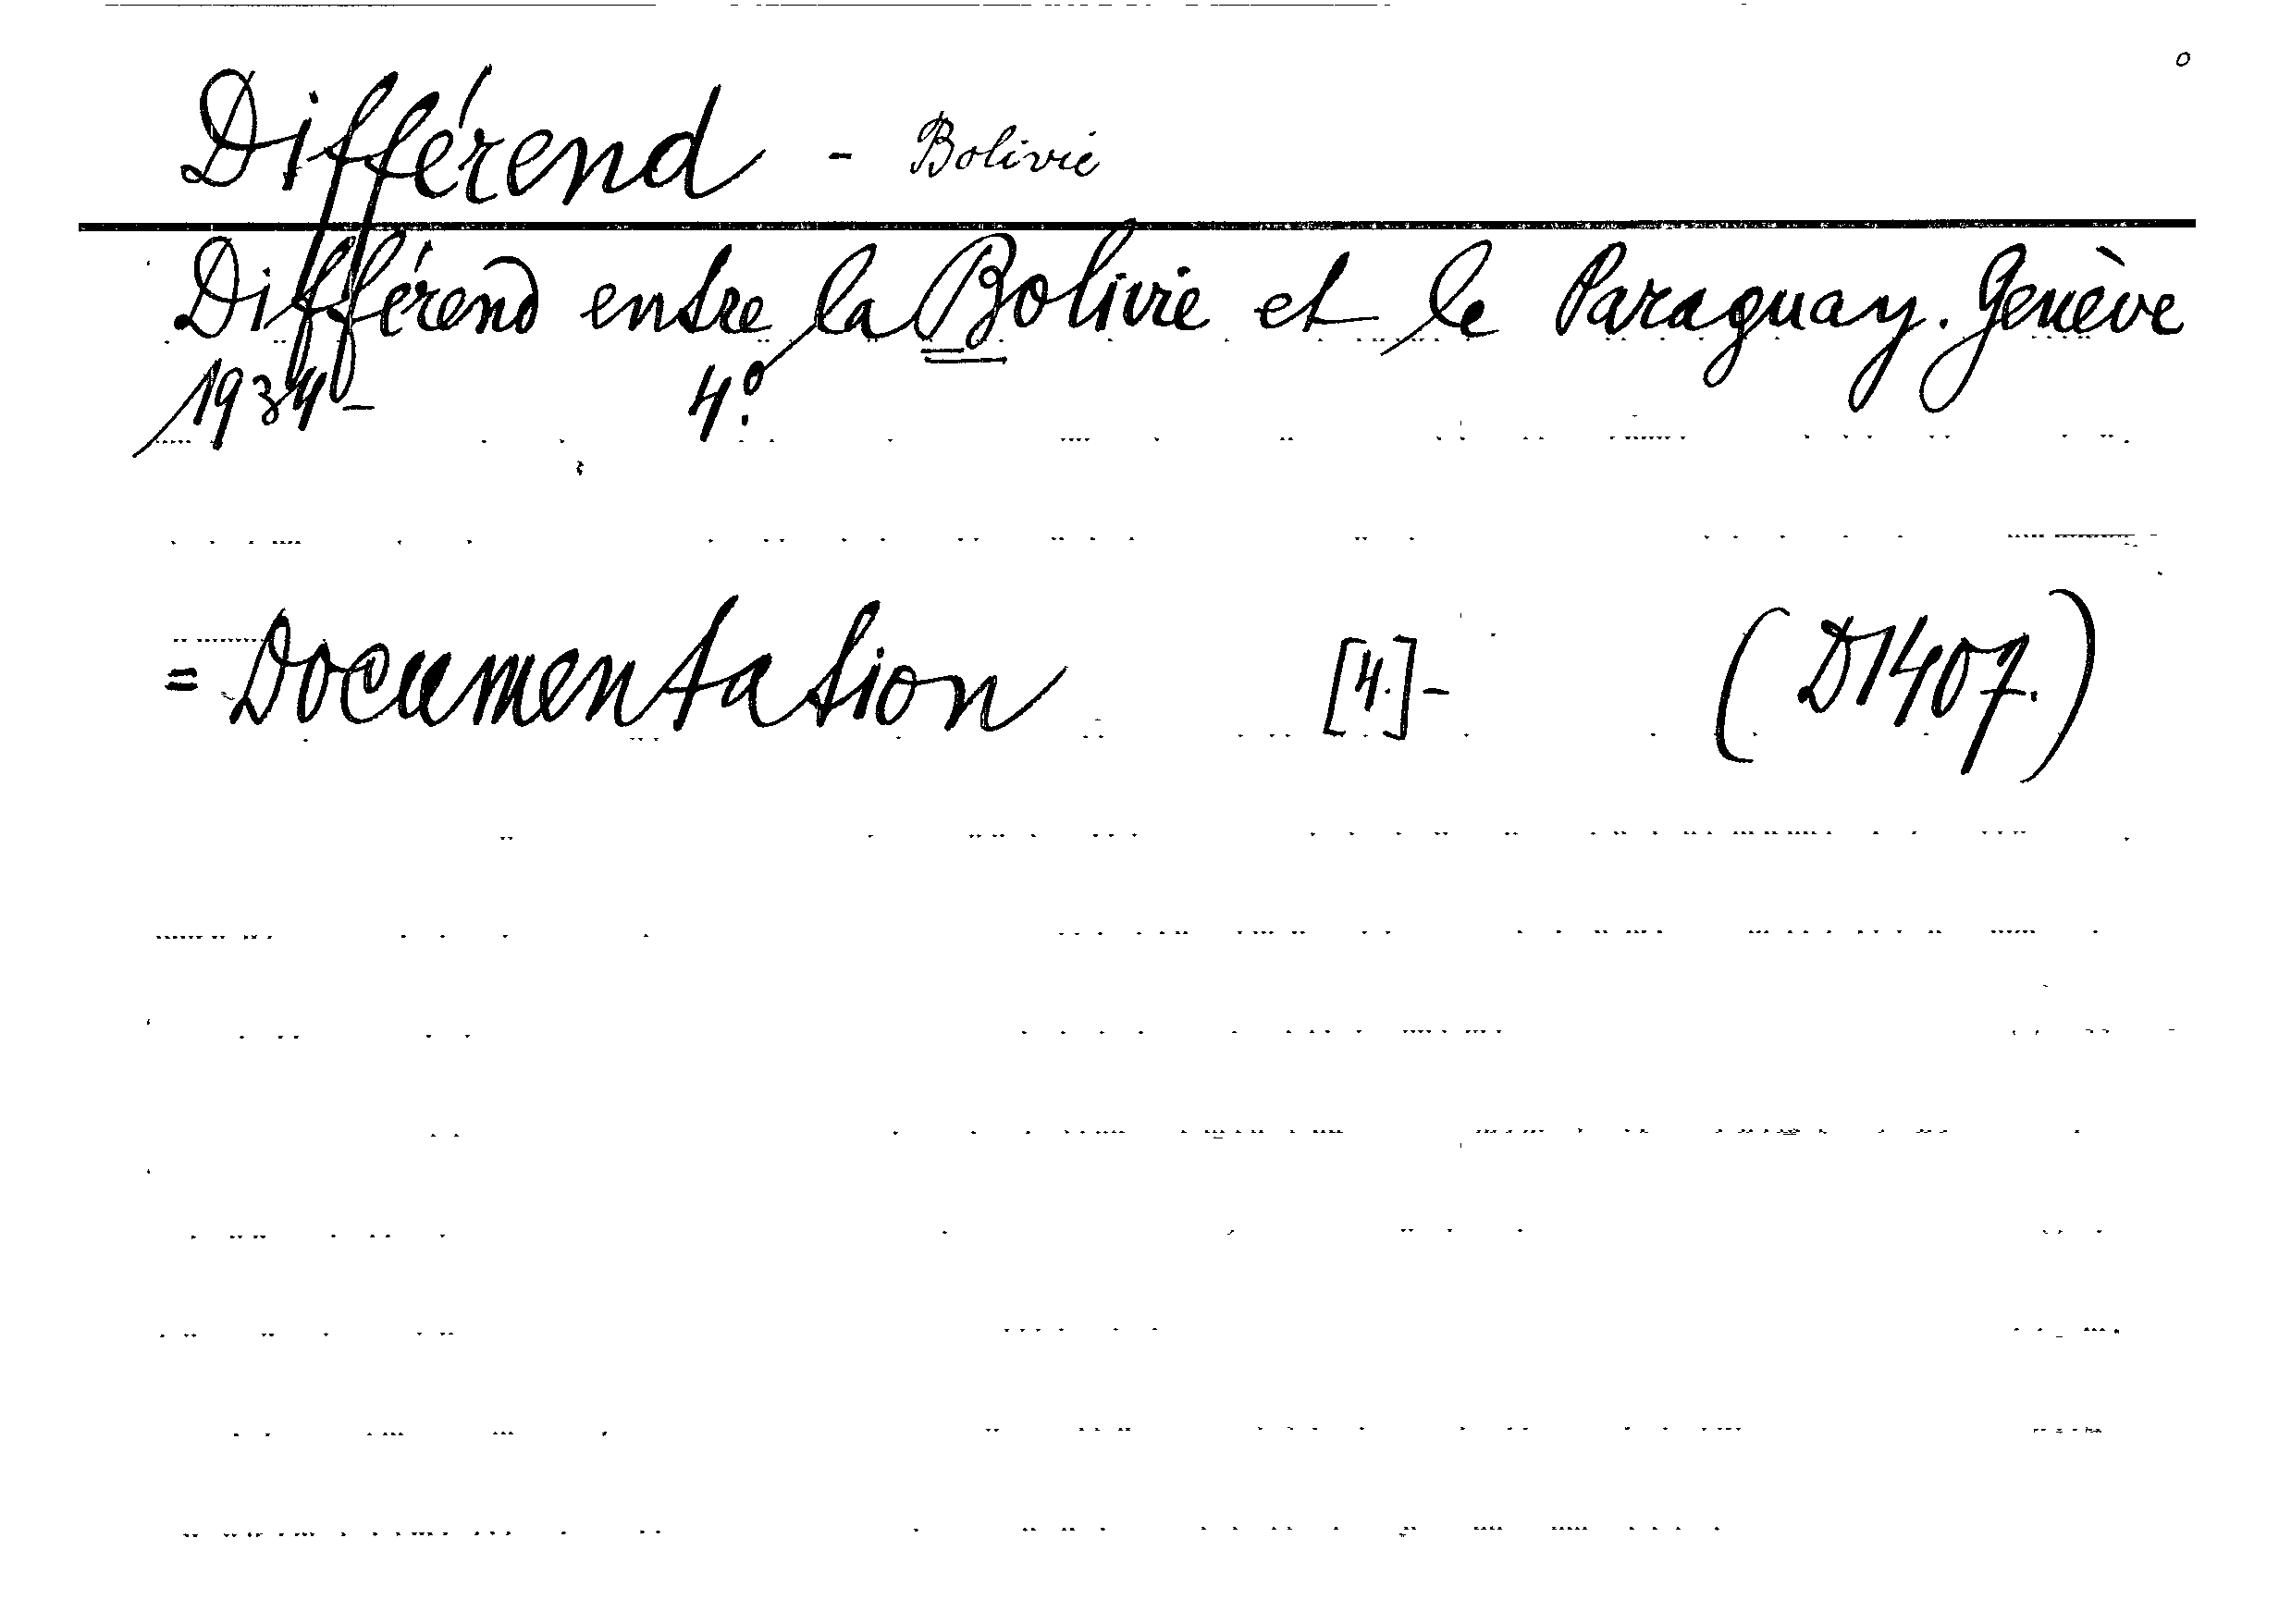 Différend - Bolivie
Différend entre la Bolivie et le Paraguay. Genève
1934- 4º.
= Documentation [4.]- (D1407.)